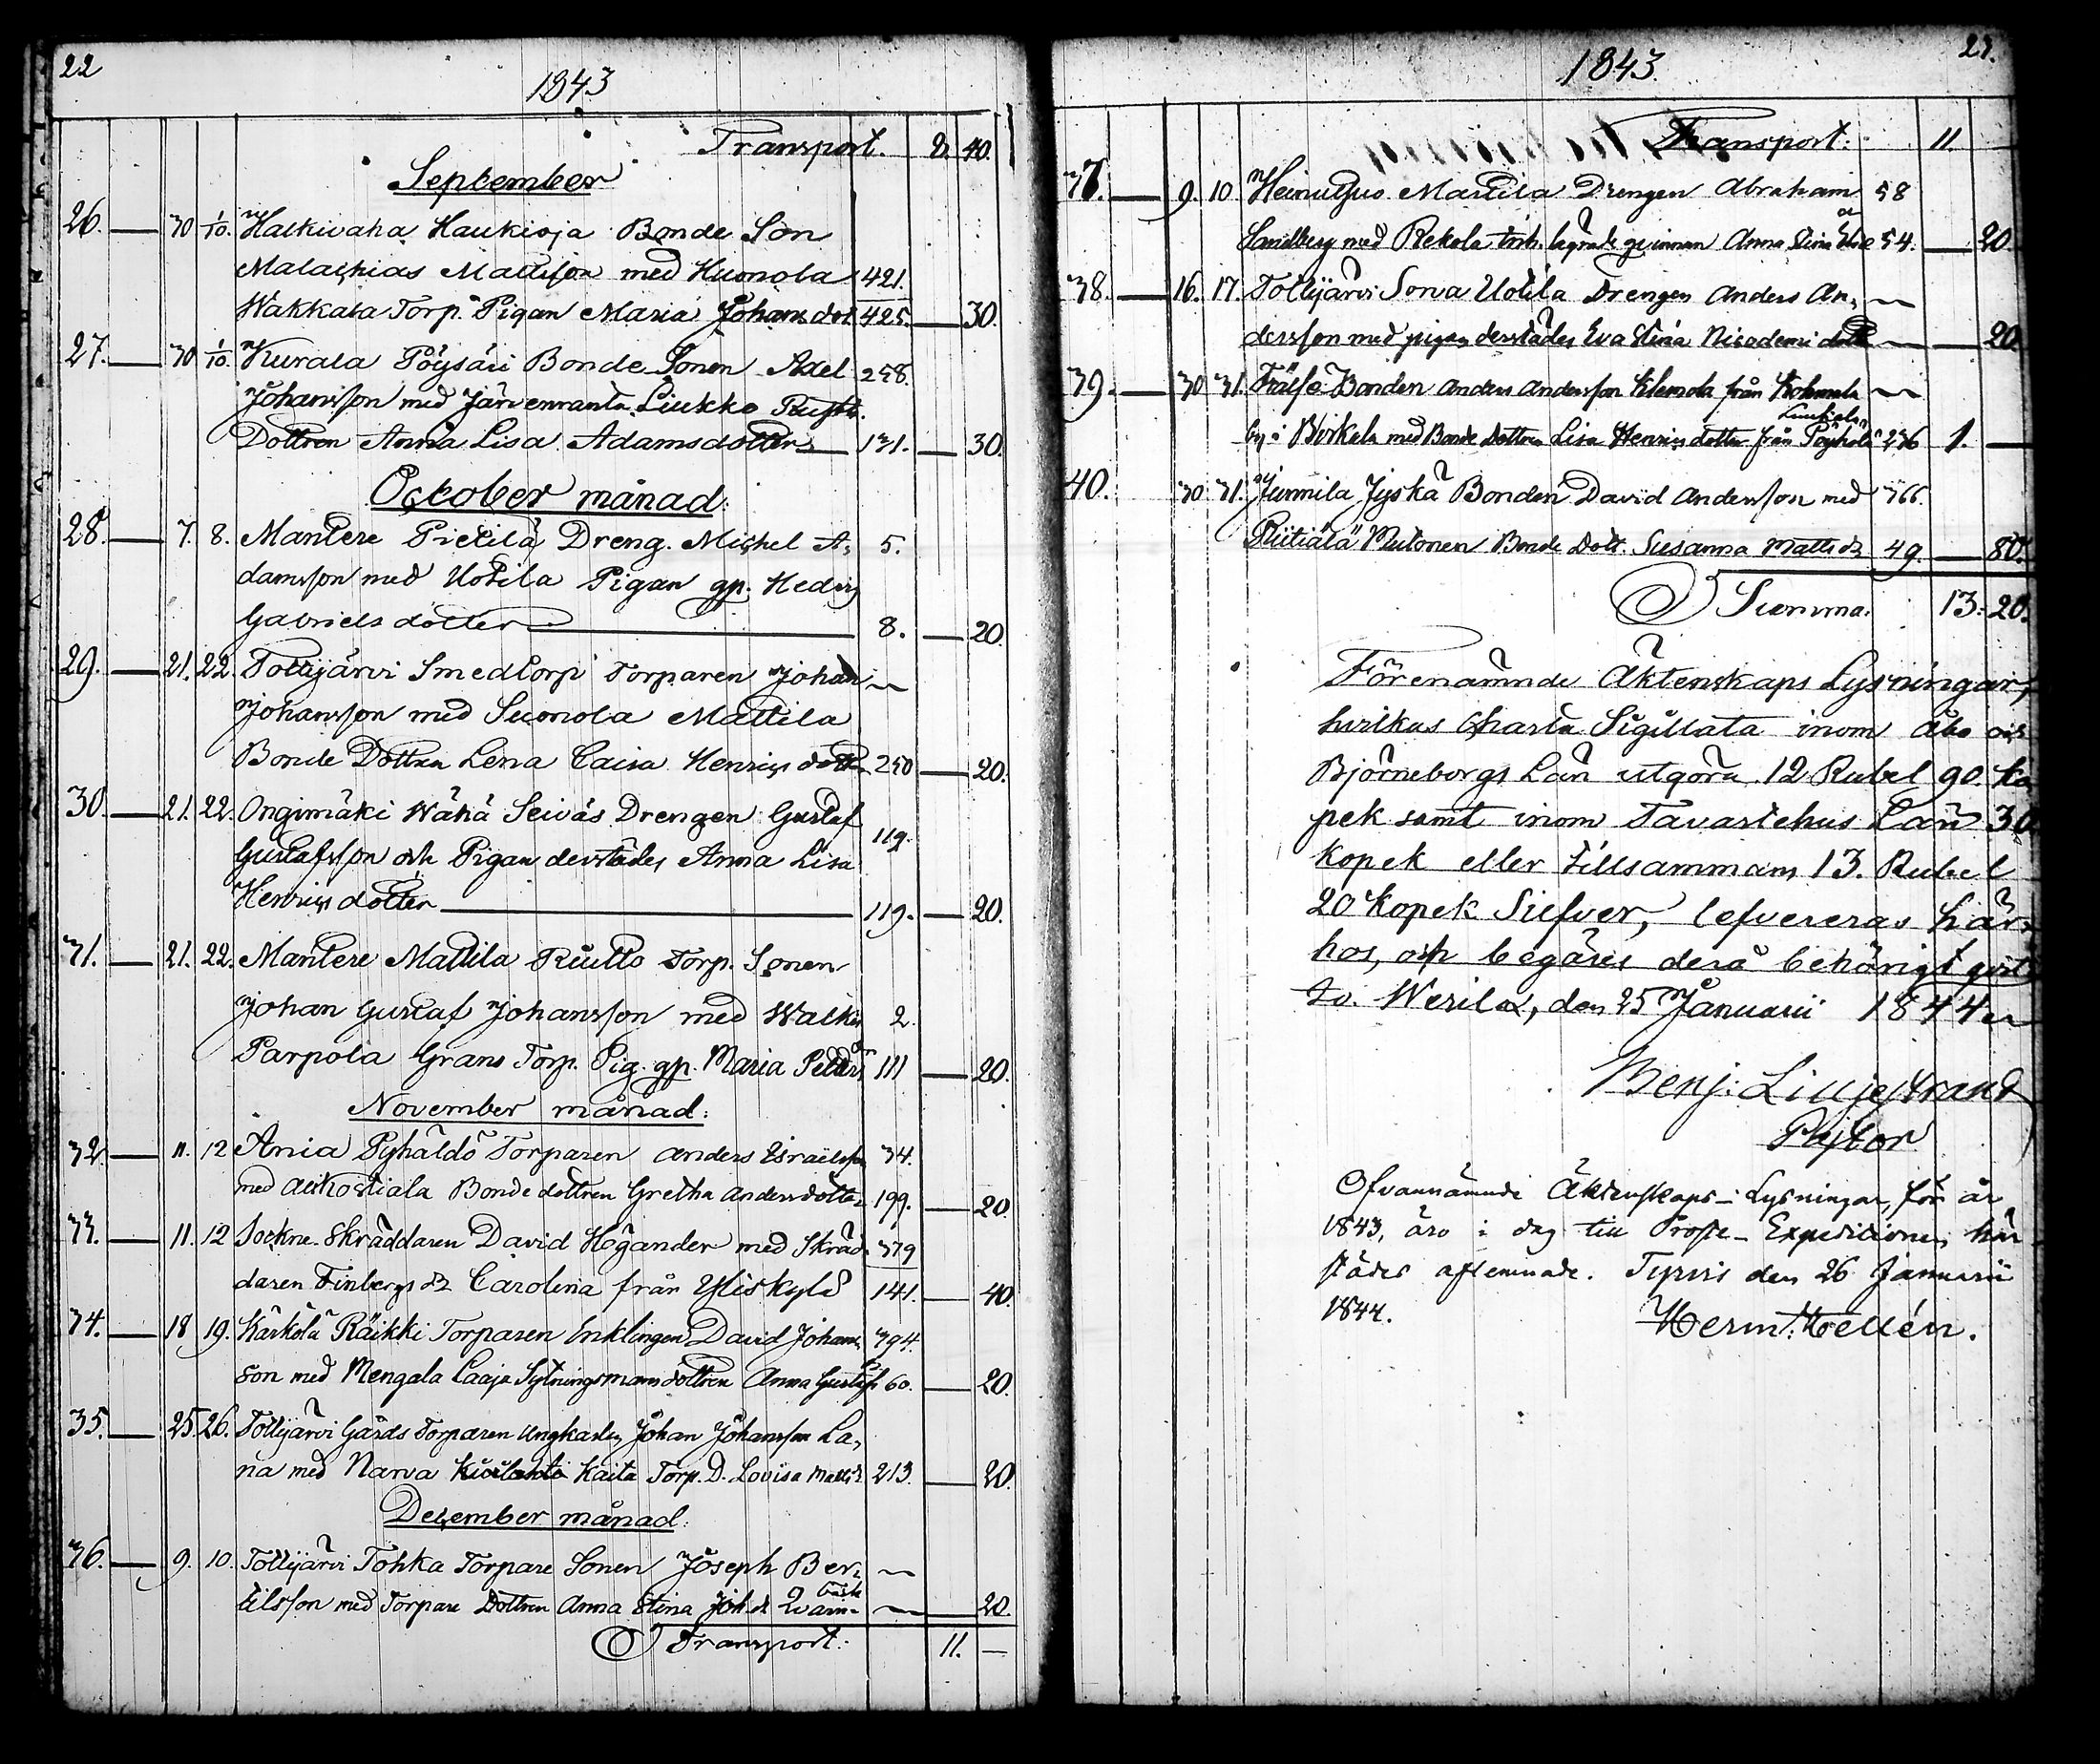 22
1843
Transport. 8. 40.
September
26. — 30 1/10. Halkivaha Haukioja Bonde Son
Malachias Mattsson med Huonola 421.
Wakkala Torp. Pigan Maria Johansdot 425. — 30.
27. — 30 1/10. Kurala Pöysäri Bonde Sonen Axel 258.
Johansson med Järvenranta Liukko Rusth.
Dottren Anna Lisa Adamsdotter 131. — 30.
October månad:
28. — 7. 8. Mantere Pietilä Dreng. Michel A= 5.
damsson med Uotila Pigan gp. Hedvig
Gabriels dotter — 8. — 20
29. — 21. 22. Tottijärvi Smedtorp Torparen Johan —
Johansson med Suonola Mattila
Bonde Dottren Lena Caisa Henrics dotter 250 — 20.
30. — 21. 22. Ongimäki Wähä Seiväs Drengen Gustaf 119.
Gustafsson och Pigan derstädes Anna Lisa
Henrics dotter — 119. — 20.
31. — 21. 22. Mantere Mattila Ruitto Torp. Sonen
Johan Gustaf Johansson med Walkis 2.
Parpola Grans Torp. Pig. gp. Maria Peders dr 111 — 20.
November månad:
32. — 11. 12 Ania Pyhältö Torparen Anders Israelsson 34.
med Alkostiala Bonde dottren Gretha Andersdotter 199. — 20
33. — 11. 12 Sockne-Skräddaren David Högander med Skräd= 379
daren Finbergs dr Carolina från Yliskylä 141. — 40.
34. — 18 19. Kärkölä Räikki Torparen Enklingen David Johans= 394.
son med Mengala Laaja Sytningsmans dottren Anna Gustafs dr 60. — 20.
35. — 25 26. Tottijärvi Gårds Torparen Ungkarlen Johan Johansson La=
na med Narva Kaita Torp. D. Lovisa Matts d. 213. — 20.
December månad:
36. — 9. 10. Tottijärvi Tohka Torpare Sonen Joseph Ber= —
tilsson med Torpare Dottren Anna Stina Joh. dr Qvarn= back — 20.
Transport: 11. —
23.
1843.
Transport: 11.
37. — 9. 10 Heinusuo Mattila Drengen Abraham 58
Sandberg med Rekola Inh. lägrade qvinnan Anna Stina 54. — 20
38. — 16. 17. Tottijärvi Sorva Uotila Drengen Anders An= —
dersson med pigan derstädes Eva Stina Nicodemi dotter — — 20
39. — 30 31. Frälse-Bonden Anders Andersson Klemola från —
by i Birkala med Bonde Dottren Lisa Henrics dotter från Pöyhölä 236 1. —
40. 30 31. Junnila Jyskä Bonden David Andersson med 366.
Riitiälä Mutonen Bonde Dott. Susanna Matts dr 49. — 80.
Summa. 13: 20.
Förenämnde Äktenskaps Lysningar,
hvilkas Charta Sigillata inom Åbo och
Björneborgs Län utgöra 12 Rubel 90. Ko
pek samt inom Tavastehus Län 30
Kopek eller tillsammans 13. Rubel
20 Kopek Silfver, lefvereras här=
hos, och begäres derå behörigt qvit=
to. Wesilax, den 25 Januarii 1844
Benj: Liljestrand
Pastor
Ofvannämnde Äktenskaps-Lysningar, för år
1843, äro i dag till Prosts-Expeditionen här=
städes aflemnade. Tyrvis den 26 Januarii
1844. Herm: Hellén.